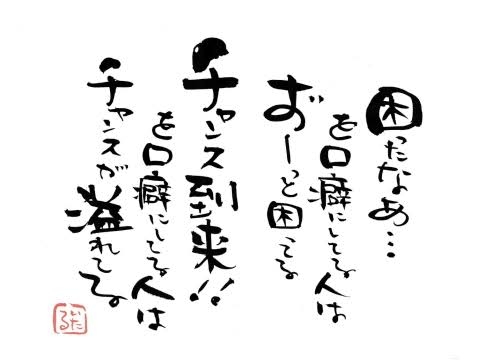 困ったなあ…
を口癖にしてる人は
ずーっと困ってる
チャンス到来!!
を口癖にしてる人は
チャンスが溢れてる。